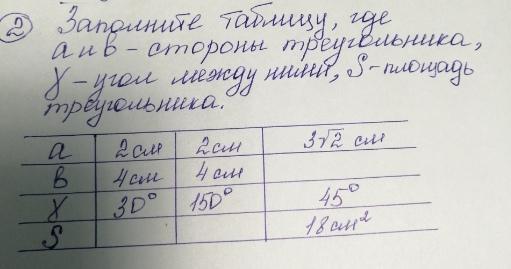 2 Заполните таблицу, где
а и в - стороны треугольника,
γ - угол между ними, S - площадь
треугольника.
а 2см 2см 3√2 см
в 4см 4см
γ 30° 150° 45°
S 18см²